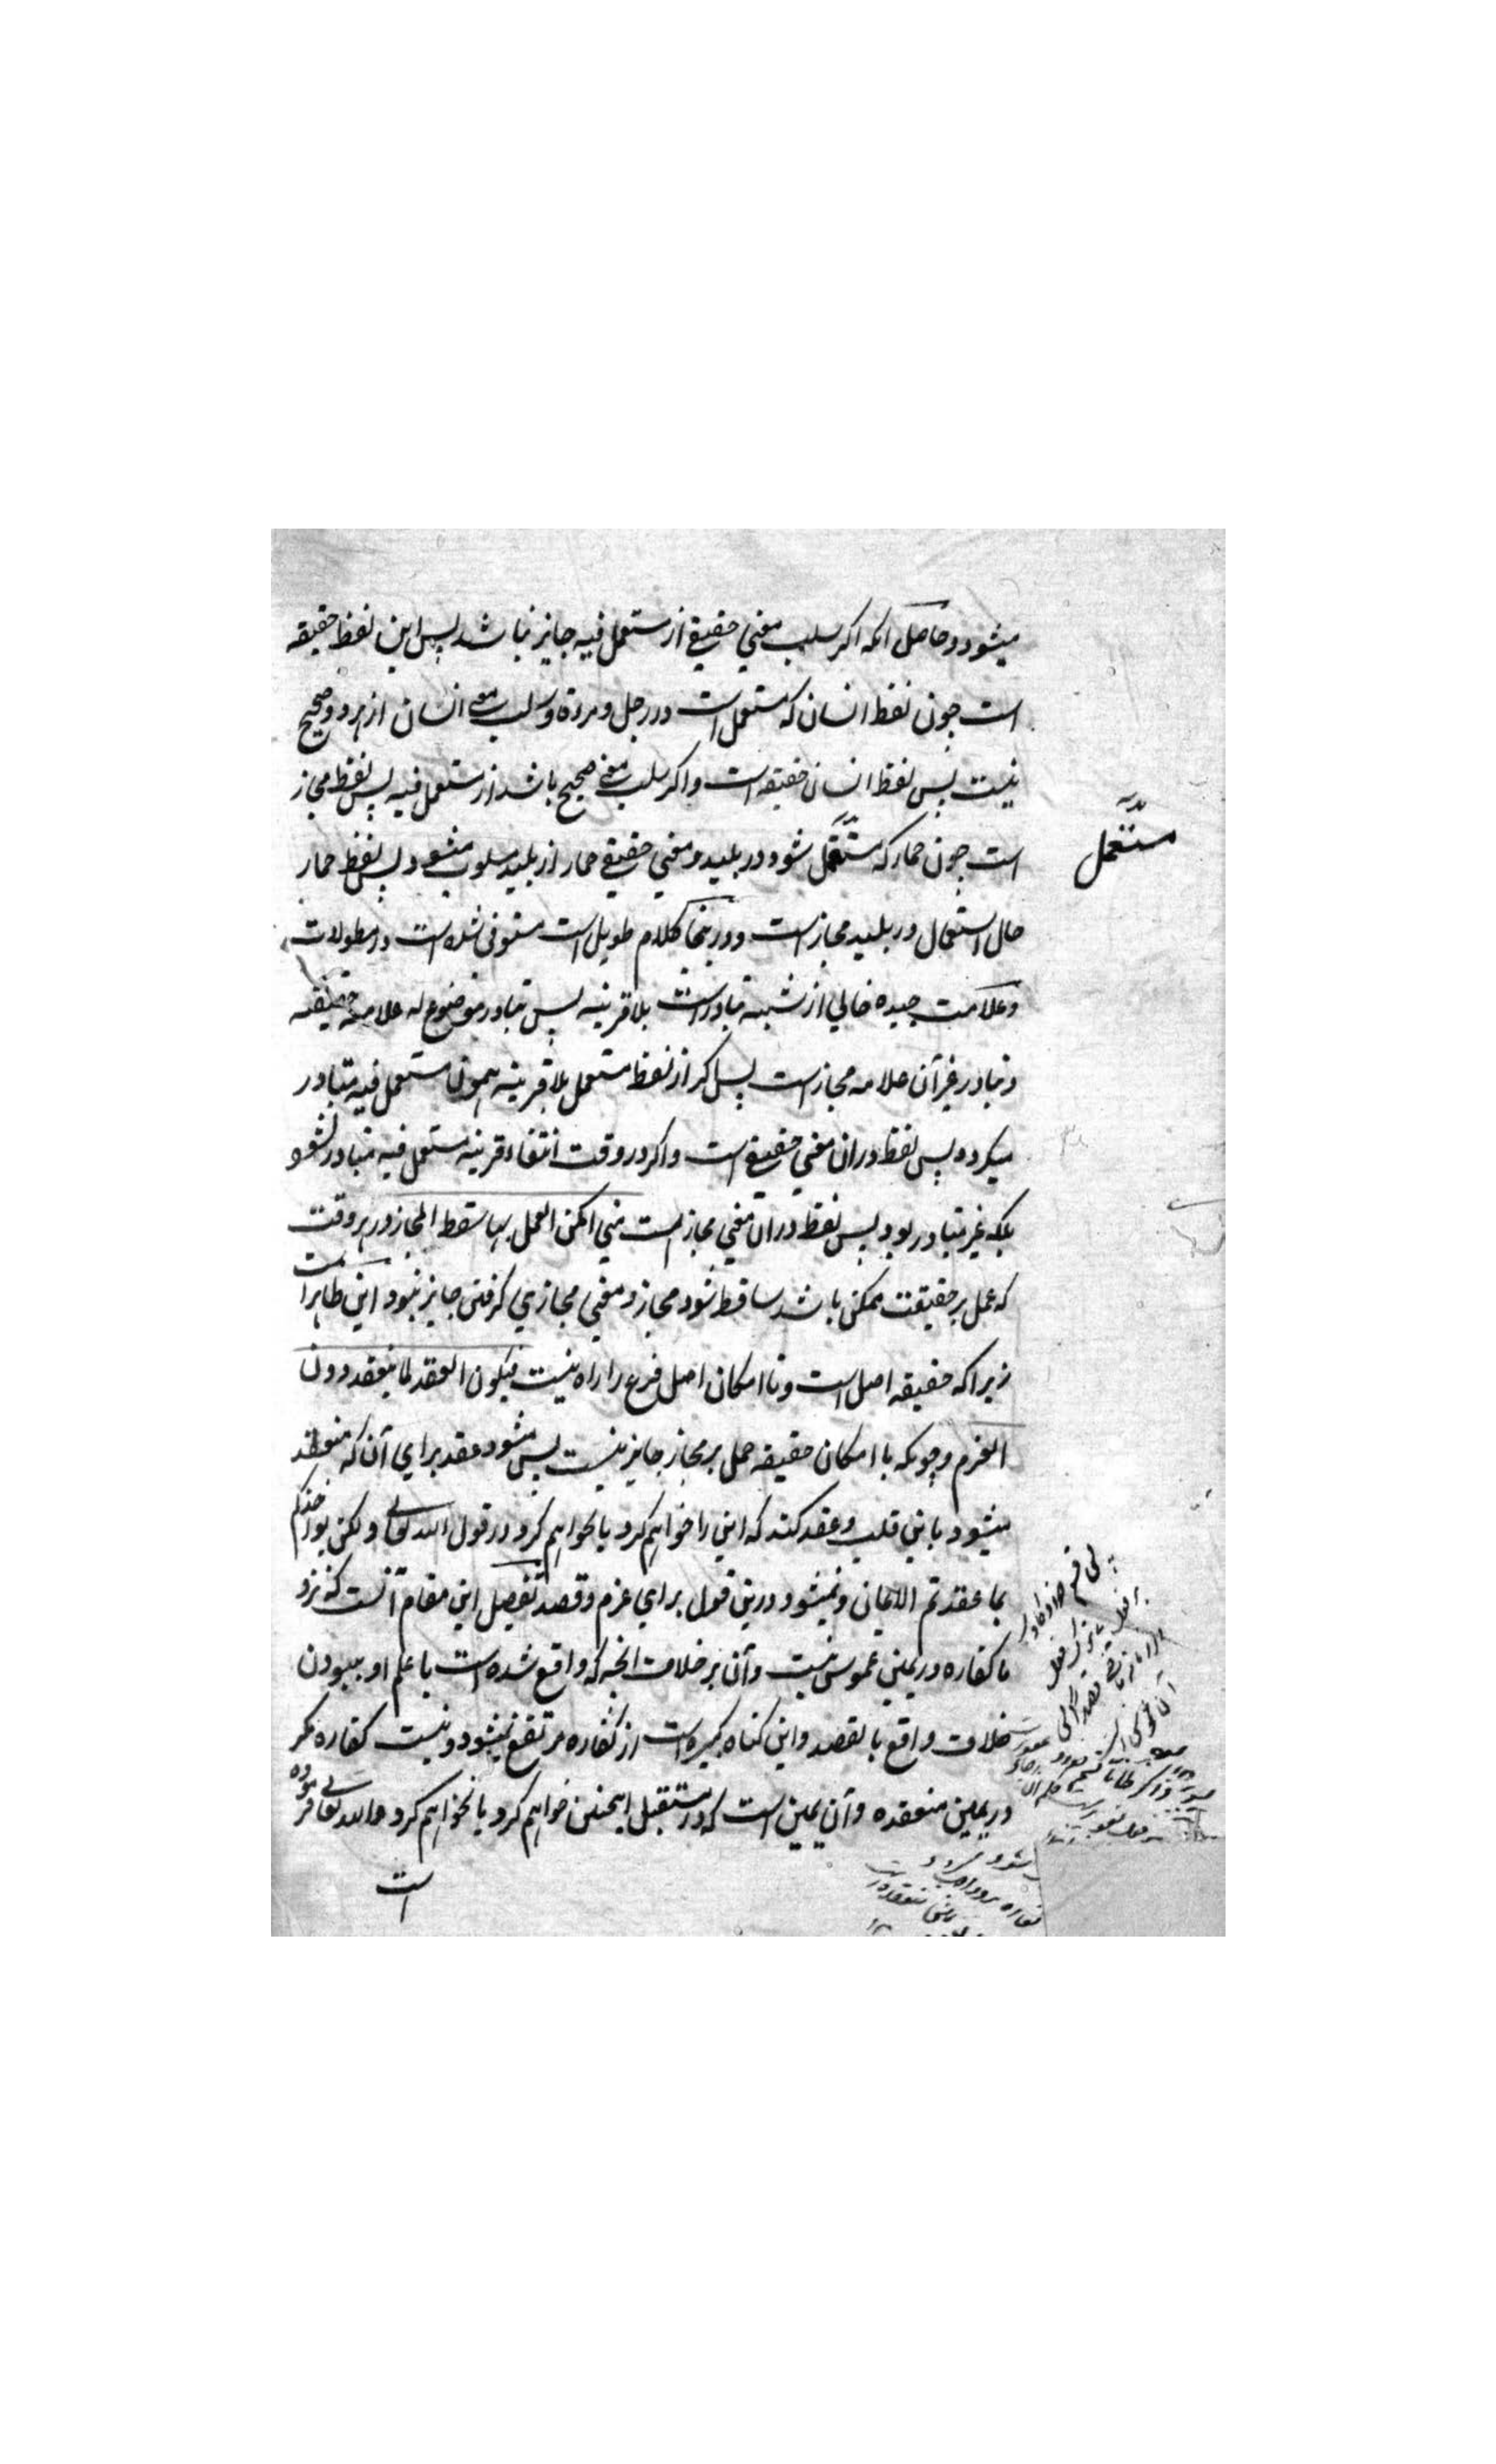 میشود و حاصل آنکه اگر سلب معنی حقیقی از مستعمل فیه جایز نباشد پس این لفظ حقیقه
است چون لفظ انسان که مستعمل است در رجل و مرءة و سلب معنی انسان از هر دو صحیح
نیست پس لفظ انسان حقیقه است و اگر سلب معنی صحیح باشد از مستعمل فیه پس لفظ مجاز
است چون حمار که مستعمل شود در بلید و معنی حقیقی حمار از بلید مسلوب میشود پس لفظ حمار
مستعمل
حال استعمال در بلید مجاز است و درینجا کلام طویل است مستوفی شده است در مطولات
و علامت جیده خالی از شبهه تبادر است بلا قرینه پس تبادر موضوع له علامة حقیقه
و تبادر غیر آن علامه مجاز است پس اگر از لفظ مستعمل بلا قرینه همون مستعمل فیه متبادر
میگردد پس لفظ در ان معنی حقیقی است و اگر در وقت انتفاء قرینه مستعمل فیه متبادر نشود
بلکه غیر متبادر بود پس لفظ در ان معنی مجاز است متی امکن العمل بها سقط المجاز و هر وقت
که عمل بر حقیقت ممکن باشد ساقط شود مجاز و معنی مجازی گرفتن جایز نبود این ظاهر است
زیرا که حقیقه اصل است و تا امکان اصل فرع را راه نیست فیکون العقد لما ینعقد دون
العزم و چونکه با امکان حقیقه حمل بر مجاز جایز نیست پس میشود عقد برای آن که منعقد
میشود یا بنی قلب و عقد کند که این را خواهم کرد یا نخواهم کرد در قول الله تعالی و لکن یؤاخذکم
بما عقدتم الایمان و نمیشود درین قول برای عزم و قصد تفصیل این مقام آنست که نزد
ما کفاره در یمین غموس نیست و آن بر خلاف آنچه که واقع شده است با علم او ببودن
خلاف واقع بالقصد و این گناه کبیره است از کفاره مرتفع نمیشود و نیست کفاره مگر
در یمین منعقده و آن یمین است که در مستقبل اینچنین خواهم کرد یا نخواهم کرد و الله تعالی فرموده
است